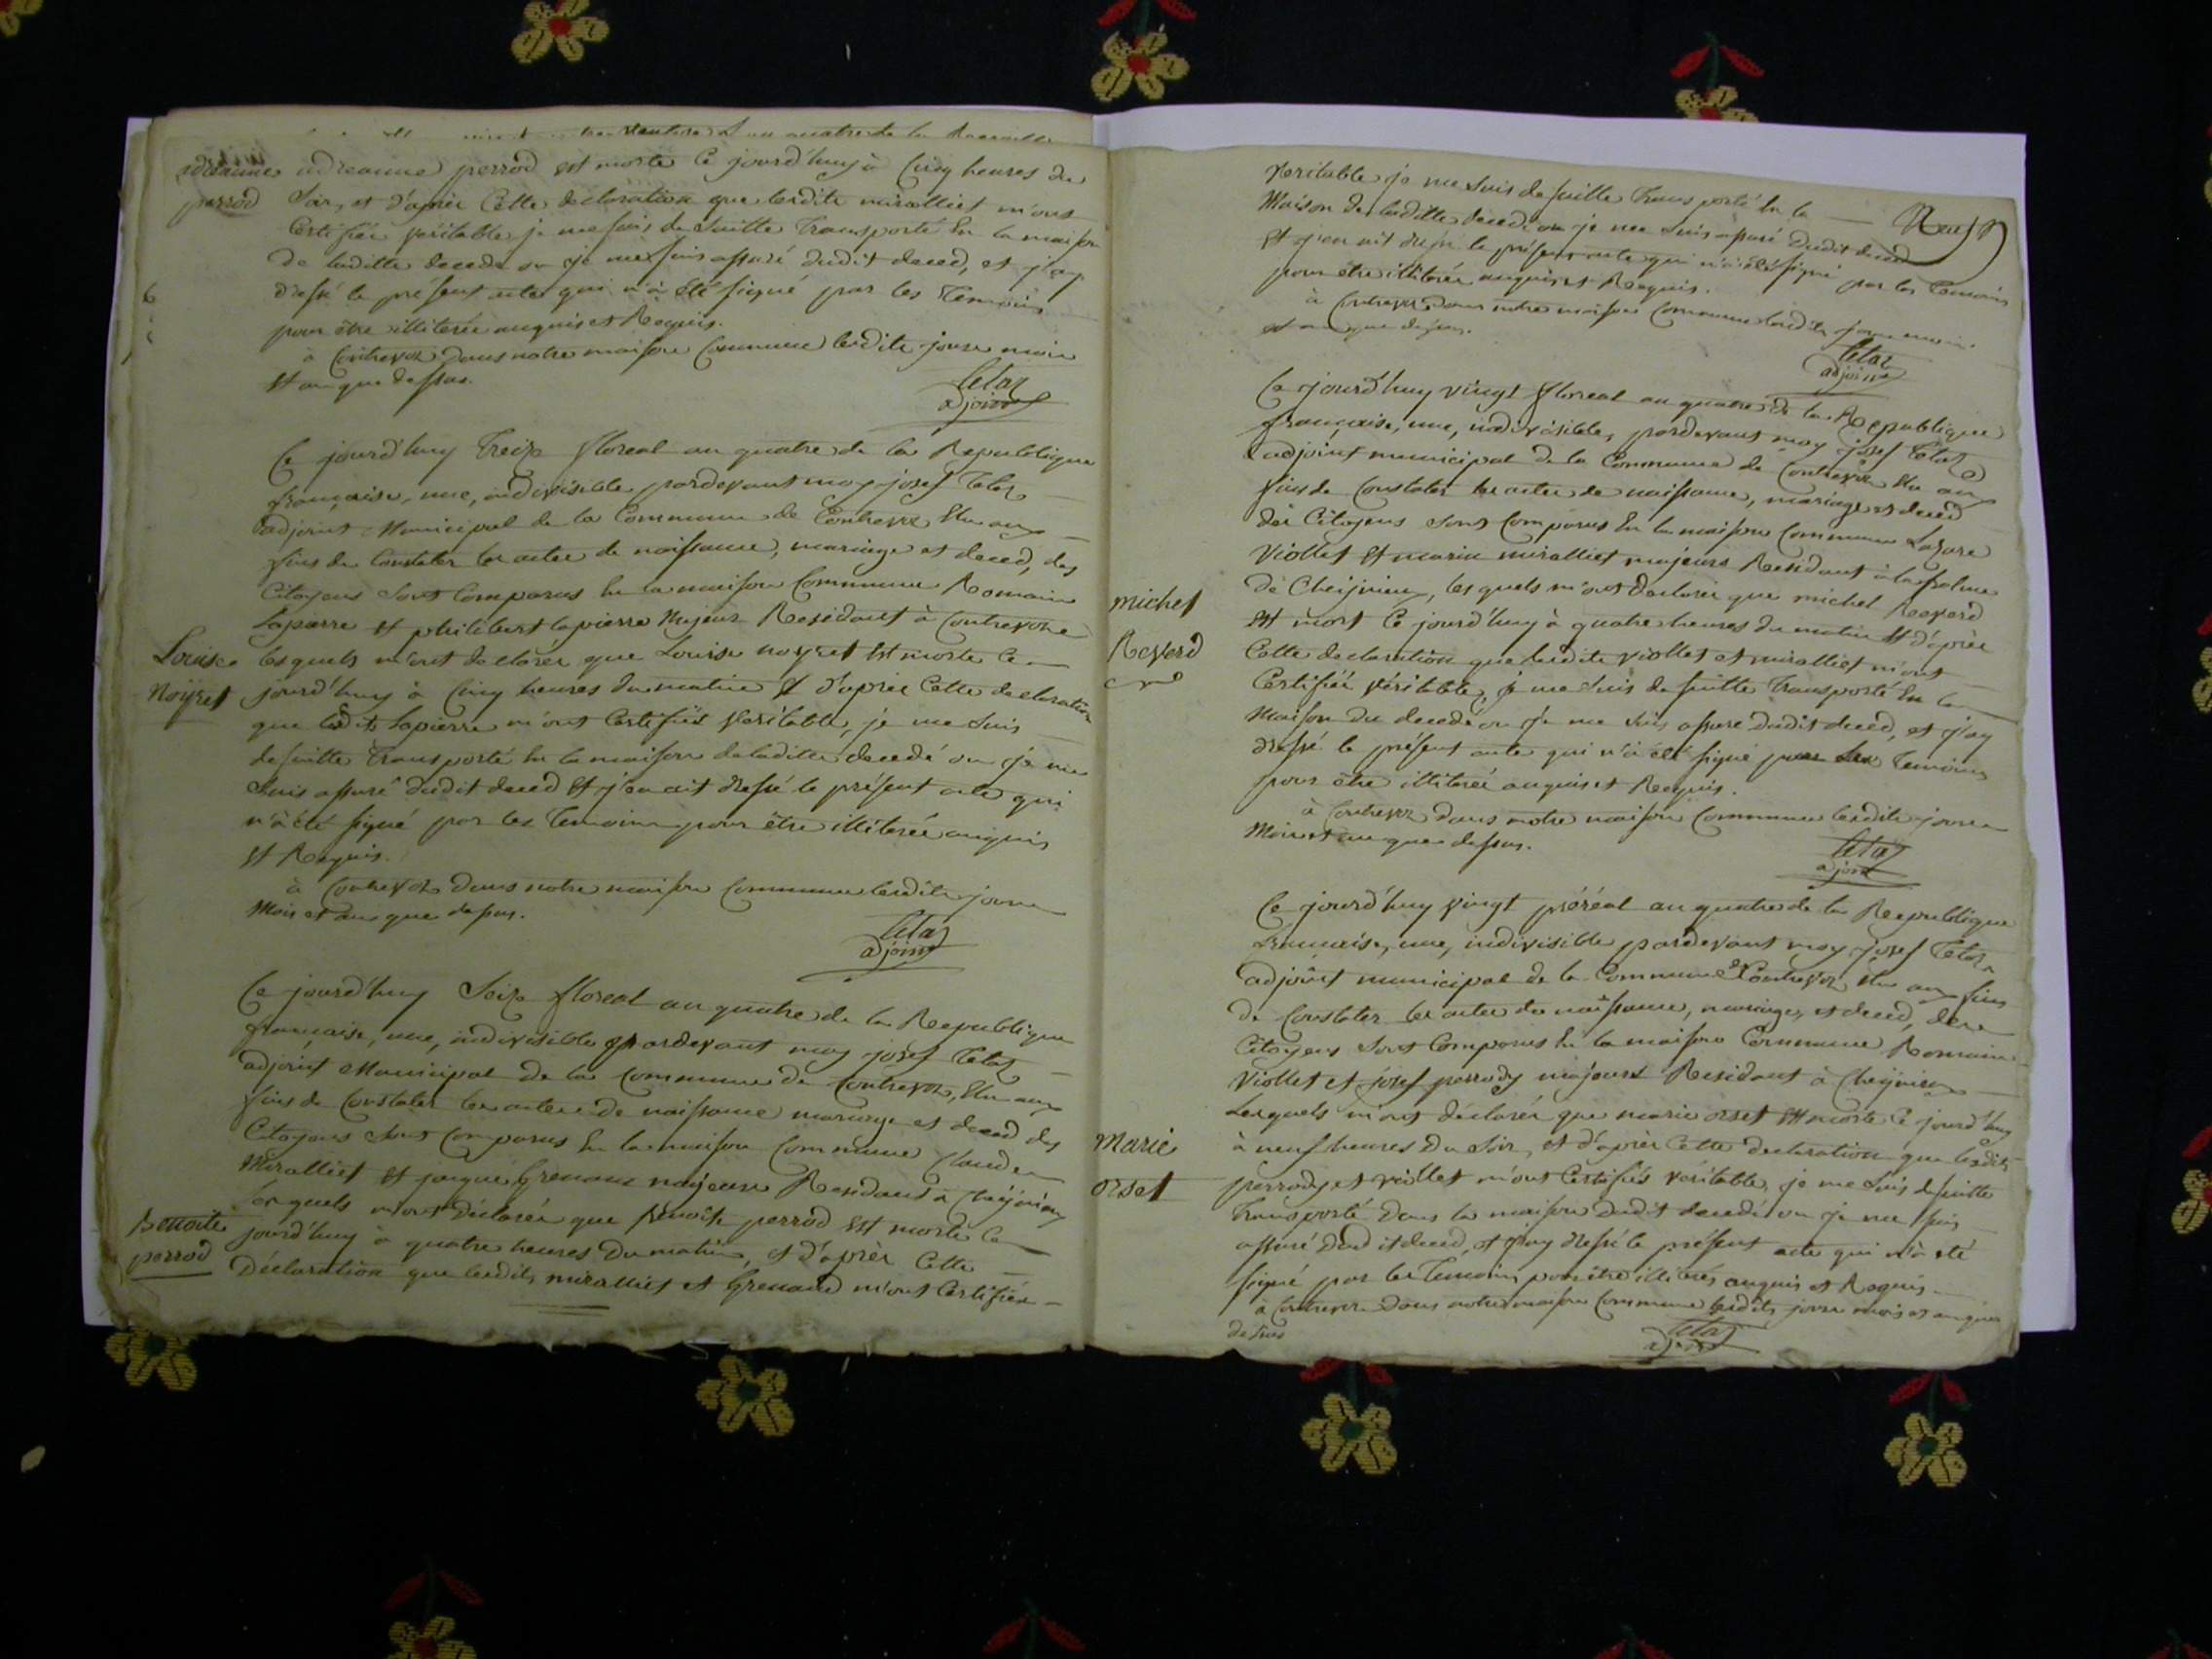 adreanne perrod est morte ce jourd'huy à cinq heures du
perrod
soir, et d'après cette declaration que lesdits miralliet m'ont
certifiée veritable je me suis de suitte transporté en la maison
de laditte decedé ou je me suis assuré dudit deced, et j'ay
dressé le présent acte qui n'à été signé par les temoins
pour être illiterée anquis et Requis.
à Contrevoz dans notre maison Commune lesdits jour mois
et an que dessus.
tetaz
adjoint
Ce jourd'huy treize floreal an quatre de la Republique
française, une, indivisible pardevant moy josef tetaz
adjoint Municipal de la Commune de Contrevoz Elu aux
fins de Constater les actes de naissance, mariage et deced, des
Citoyens sont Comparus en la maison Commune Romain
Lapierre et philibert lapierre Majeur Residant à Contrevoz
Louise
Noyret
lesquels m'ont declarée que Louise noyret est morte ce
jourd'huy à cinq heures du matin et d'après cette declaration
que lesdits Lapierre m'ont certifiée veritable, je me suis
de suitte transporté en la maison de laditte decedé ou je me
suis assuré dudit deced et j'en ait dressé le présent acte qui
n'à été signé par les temoins pour être illiterée anquis
et Requis.
à Contrevoz dans notre maison Commune lesdits jour
Mois et an que dessus.
tetaz
adjoint
Ce jourd'huy Seize floreal an quatre de la Republique
française, une, indivisible pardevant moy josef tetaz
adjoint Municipal de la Commune de Contrevoz, Elu aux
fins de Constater les actes de naissance mariage et deced des
Citoyens sont Comparus en la maison Commune Claude
Miralliet et jacque Grenaud majeurs Residant à Cheijnieu
Benoite
perrod
lesquels m'ont déclarée que Benoite perrod est morte ce
jourd'huy à quatre heures du matin, et d'après cette
Déclaration que lesdits miralliet et Grenaud m'ont certifiée
veritable je me suis de suitte transporté en la
Maison de laditte decedé ou je me suis assuré dudit deced
et j'en ait dressé le présent acte qui n'à été signé par les temoins
pour être illiterée anquis et Requis.
à Contrevoz dans notre maison Commune lesdits jour mois
et an que dessus.
tetaz
adjoint
Ce jourd'huy vingt floreal an quatre de la Republique
française, une, indivisible, pardevant moy josef tetaz
adjoint municipal de la Commune de Contrevoz Elu aux
fins de Constater les actes de naissance, mariage et deced
des Citoyens sont Comparus en la maison Commune Lazare
Viollet et marin miralliet majeurs Residant à la
de Cheijnieu, lesquels m'ont declarée que michel Reverd
michel
Reverd
est mort ce jourd'huy à quatre heures du matin et d'après
cette declaration que lesdits viollet et miralliet m'ont
certifiée véritable, je me suis de suitte transporté en la
maison du decedé ou je me suis assuré dudit deced, et j'ay
dressé le présent acte qui n'à été signé par les temoins
pour être illiterée anquis et Requis.
à Contrevoz dans notre maison Commune lesdits jour
Mois et an que dessus.
tetaz
adjoint
Ce jourd'huy vingt préréal an quatre de la Republique
française, une, indivisible pardevant moy josef tetaz
adjoint municipal de la Commune de Contrevoz Elu aux fins
de Constater les actes de naissance, mariage, et deced, des
Citoyens sont Comparus en la maison Commune Romain
Viollet et josef perrody majeurs Residant à Cheijnieu
lesquels m'ont déclarée que marie orset est morte ce jourd'huy
Marie
orset
à neuf heures du soir, et d'après cette declaration que lesdits
perrody et viollet m'ont certifiés véritable, je me suis de suitte
transporté dans la maison dudit decedé ou je me suis
assuré dudit deced, et j'ay dressé le présent acte qui n'à été
signé par les temoins pour être illiterés anquis et Requis
à Contrevoz dans notre maison Commune lesdits jour mois et an que
dessus
tetaz
adjoint